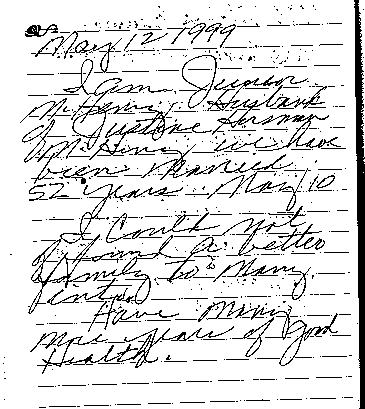 May 12 1999
I am Junior
McHenry, Husband
of Justine Hersman
McHenry, we have
been Married
52 years. May 10
I Could not
of found a better
family to Marry
into.
Have Many
more years of good
Health.